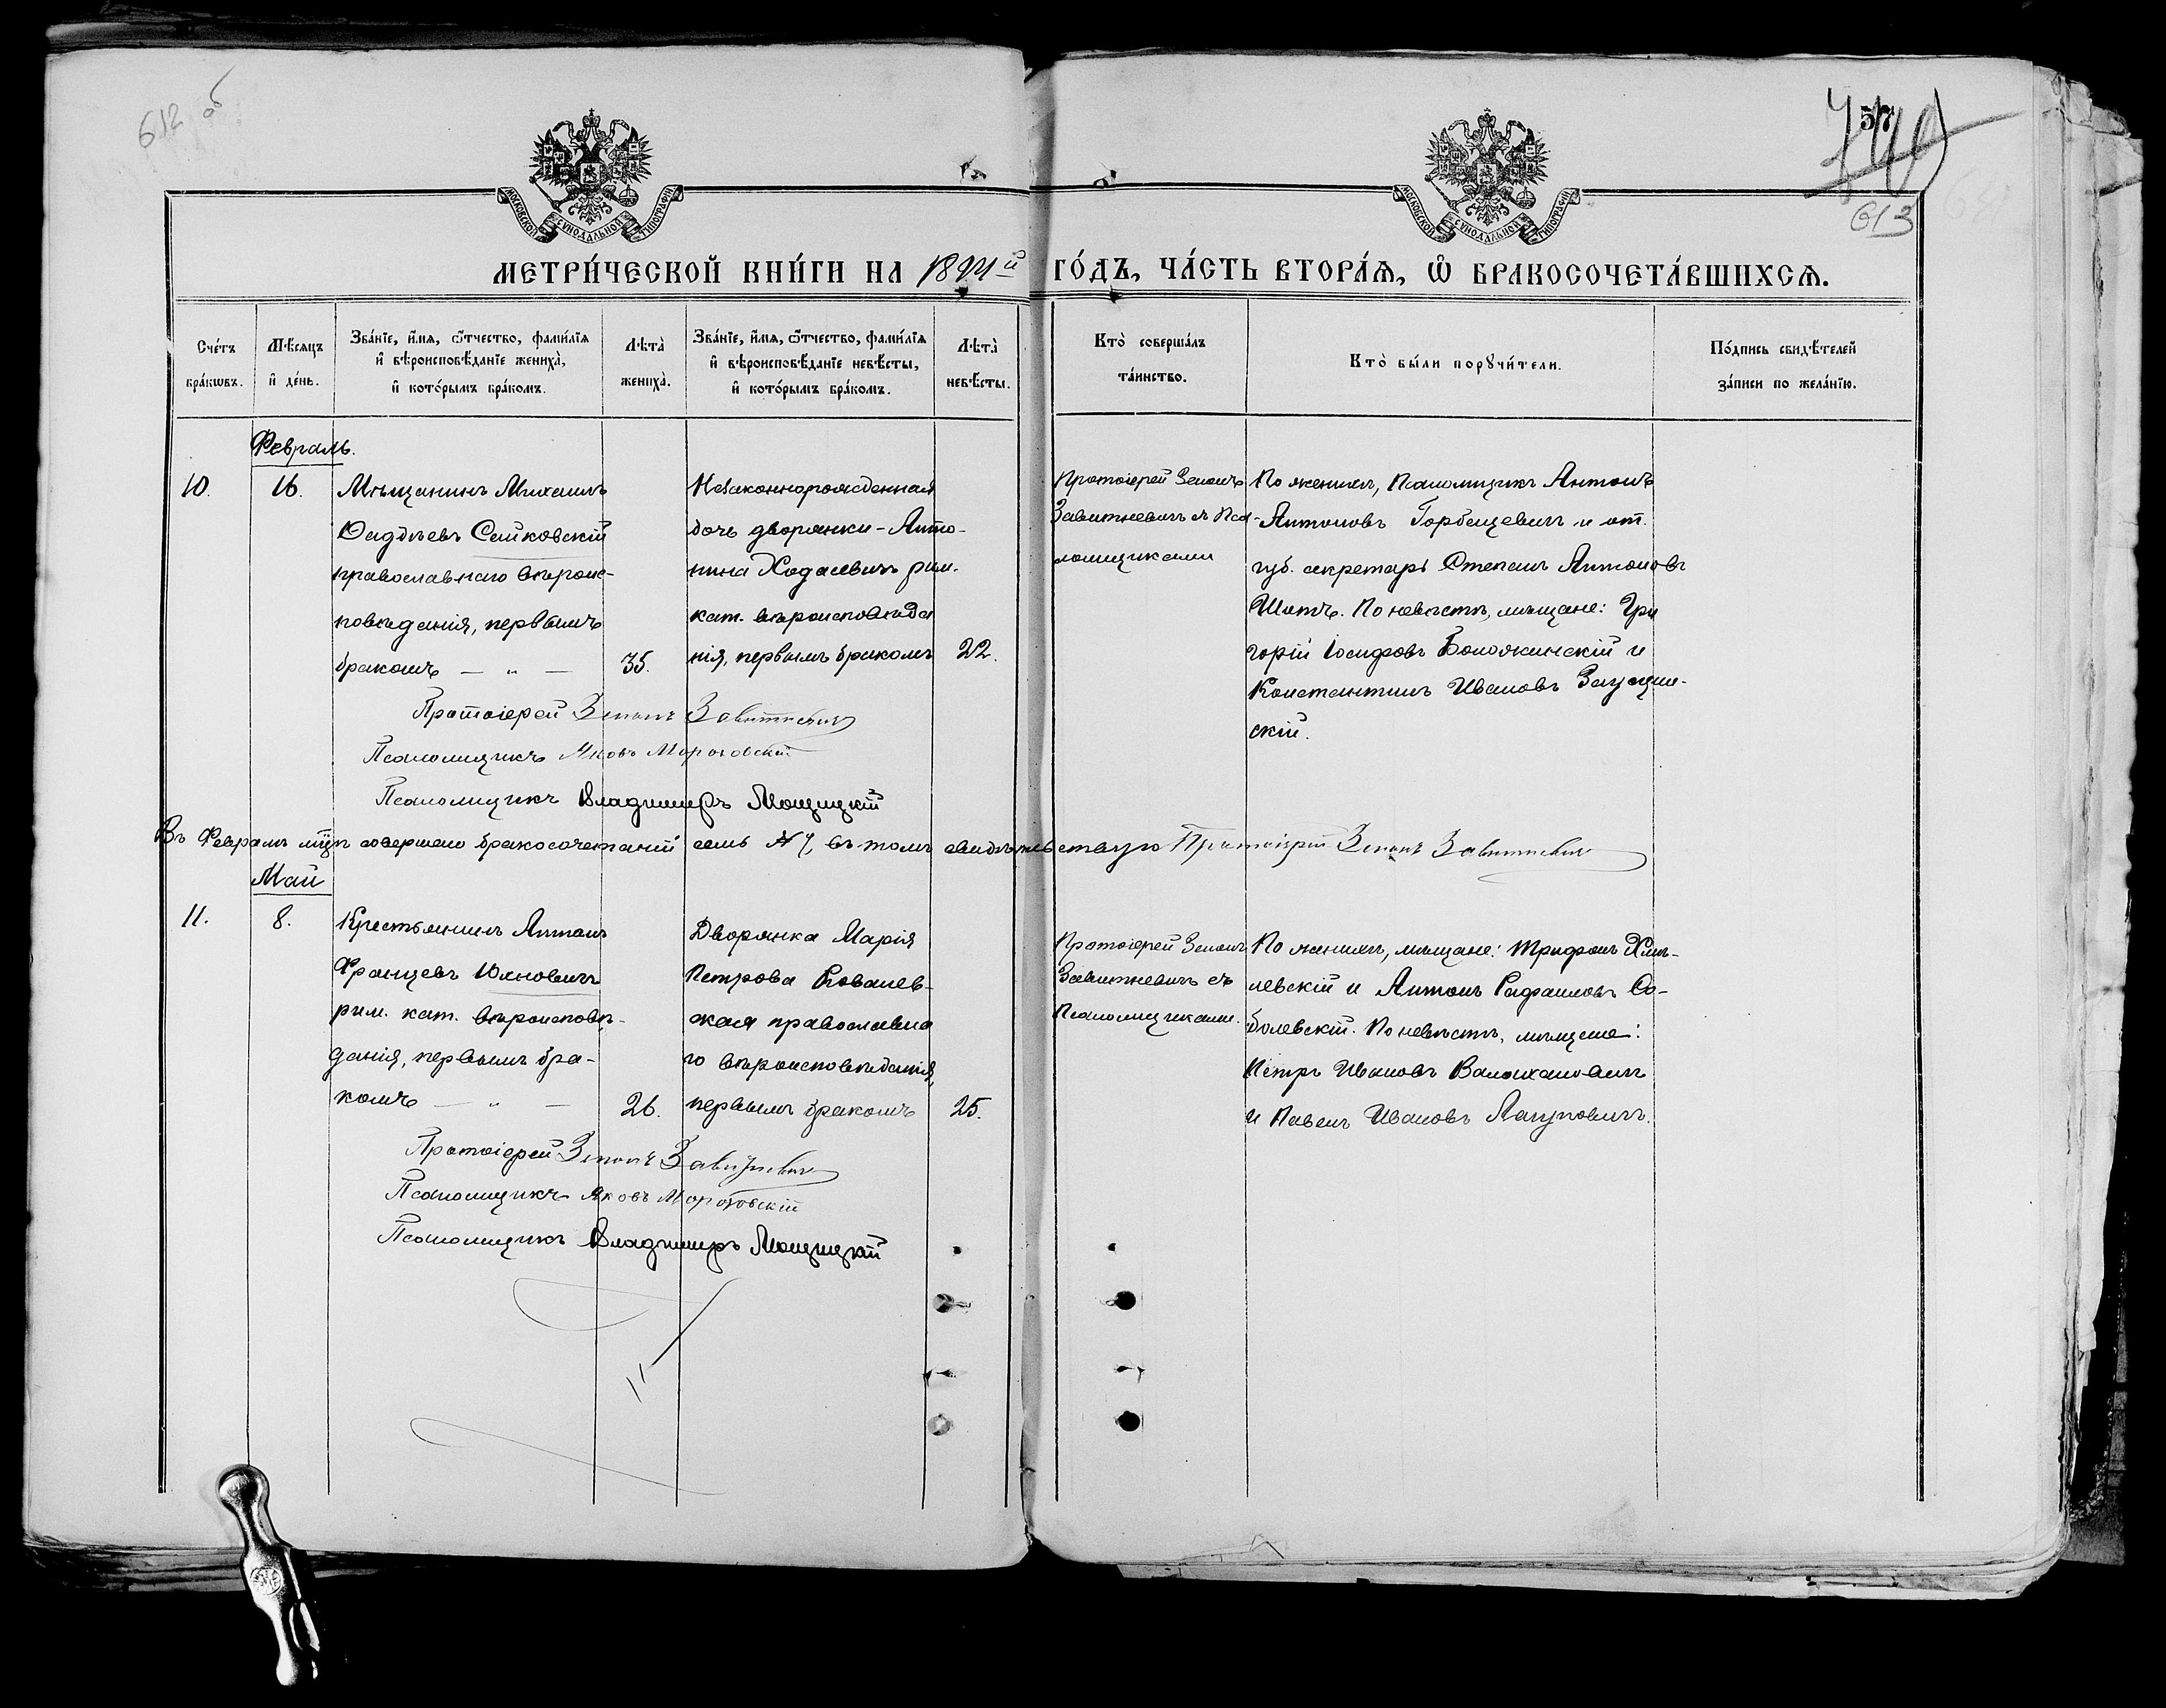 612 об
57
613
МОСКОВСКОЙ СУНОДАЛЬНОЙ ТИПОГРАФІИ
МОСКОВСКОЙ СУНОДАЛЬНОЙ ТИПОГРАФІИ
МЕТРИ́ЧЕСКОЙ КНИ́ГИ НА 1894й ГО́ДЪ, ЧА́СТЬ ВТОРА́Ѧ, Ѡ БРАКОСОЧЕТА́ВШИХСѦ.
Сче́тъ
бра́кѡвъ.
Мѣ́сѧцъ
и де́нь.
Зва́нїе, и́мѧ, ѻ́тчество, фами́лїѧ
и вѣроисповѣ́данїе жениха̀,
и кото́рымъ бра́комъ.
Лѣта̀
жениха̀.
Зва́нїе, и́мѧ, ѻ́тчество, фами́лїѧ
и вѣроисповѣ́данїе невѣ́сты,
и кото́рымъ бра́комъ.
Лѣта̀
невѣ́сты.
Кто̀ соверша́лъ
та́инство.
Кто̀ бы́ли порꙋчи́тели.
По́дпись свидѣ́телей
за́писи по жела́нїю.
Февраль.
10.
16.
Мѣщанинъ Михаилъ
Фадѣевъ Сайковскій
православнаго вѣроис-
повѣданія, первымъ
бракомъ — „ —
35.
Незаконнорожденная
дочь дворянки - Анто-
нина Ходасевичъ рим.
кат. вѣроисповѣда
нія, первымъ бракомъ
22.
Протоіерей Зенонъ
Завитневичъ съ Пса-
ломщиками
По женихѣ, Псаломщикъ Антонъ
Антоновъ Горбацевичъ и от.
губ. секретарь Степанъ Антоновъ
Шотъ. По невѣстѣ, мѣщане: Гри
горій Іосифовъ Воложинскій и
Константинъ Ивановъ
скій.
Протоіерей Зенонъ Завитневичъ
Псаломщикъ Яковъ Мороховскій
Псаломщикъ Владимиръ Мощицкій
Въ Февралѣ мцѣ совершено бракосочетаній семь № 7, въ томъ свидѣтельствую Протоіерей Зенонъ Завитневичъ
Май
11.
8.
Крестьянинъ Антонъ
Францевъ Юхновичъ
рим. кат. вѣроисповѣ-
данія, первымъ бра-
комъ — „ —
26.
Дворянка Марія
Петрова Ковалев-
ская православна
го вѣроисповѣданія,
первымъ бракомъ
25.
Протоіерей Зенонъ
Завитневичъ съ
Псаломщиками.
По женихѣ, мѣщане: Трифонъ Хмѣ-
левскій и Антонъ Рафаиловъ Со-
болевскій. По невѣстѣ, мѣщане:
Петръ Ивановъ Валахановичъ
и Павелъ Ивановъ Лагуновичъ.
Протоіерей Зенонъ Завитневичъ
Псаломщикъ Яковъ Мороховскій
Псаломщикъ Владимиръ Мощицкій